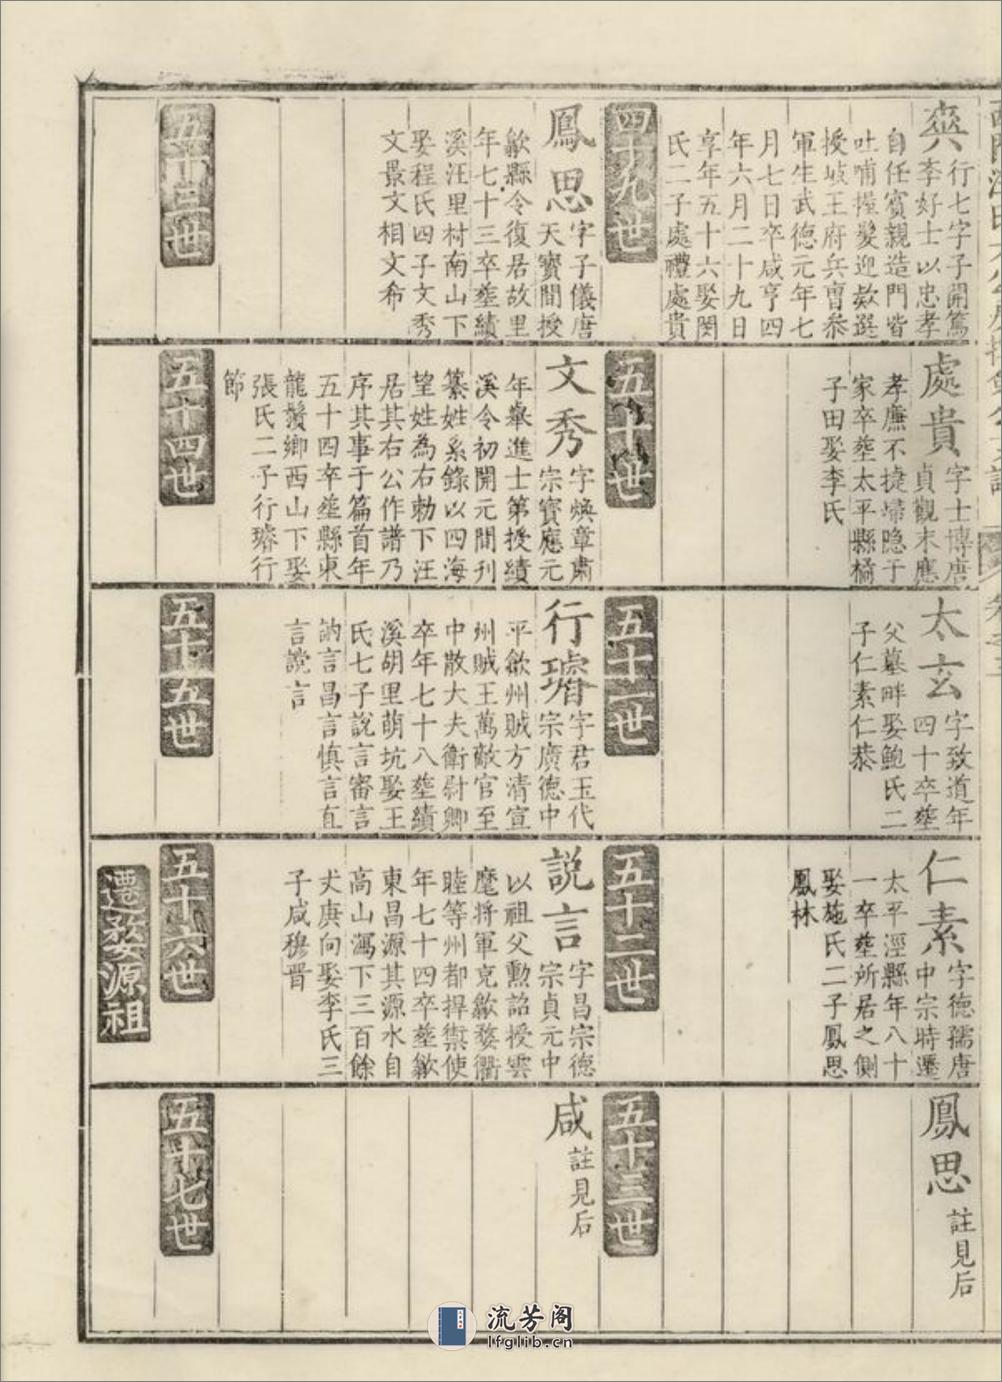 奭
行七字子開篤
李好士以忠孝
自任賓親造門皆
吐哺握髮迎款選
授岐王府兵曹叅
軍生武德元年七
月七日卒咸亨四
年六月二十九日
享年五十六娶閔
氏二子處禮處貴
四十九世
鳳思
字子儀唐
天寳間授
歙縣令復居故里
年七十三卒塟績
溪汪里村南山下
娶程氏四子文秀
文景文相文希
五十三世
處貴
字士博唐
貞觀末應
孝廉不捷歸隐于
家卒塟太平縣橋
子田娶李氏
五十世
文秀
字焕章肅
宗寳應元
年舉進士第授績
溪令初開元間刋
纂姓系錄以四海
望姓為右勅下汪
居其右公作譜乃
序其事于篇首年
五十四卒塟縣東
龍鬚鄉西山下娶
張氏二子行璿行
節
五十四世
太玄
字致道年
四十卒塟
父墓畔娶鮑氏二
子仁素仁恭
五十一世
行璿
字君玉代
宗廣德中
平歙州賊方清宣
州賊王萬敵官至
中散大夫衛尉卿
卒年七十八塟績
溪胡里萌坑娶王
氏七子說言審言
訥言昌言慎言直
言讜言
五十五世
仁素
字德孺唐
中宗時遷
太平涇縣年八十
一卒塟所居之側
娶施氏二子鳳思
鳳林
五十二世
說言
字昌宗德
宗貞元中
以祖父勳詔授雲
麾將軍克歙婺衢
睦等州都捍禦使
年七十四卒塟歙
東昌源其源水自
高山瀉下三百餘
丈庚向娶李氏三
子咸穆晋
五十六世
遷婺源祖
鳳思
註見后
五十三世
咸
註見后
五十七世
流芳阁
lfglib.cn